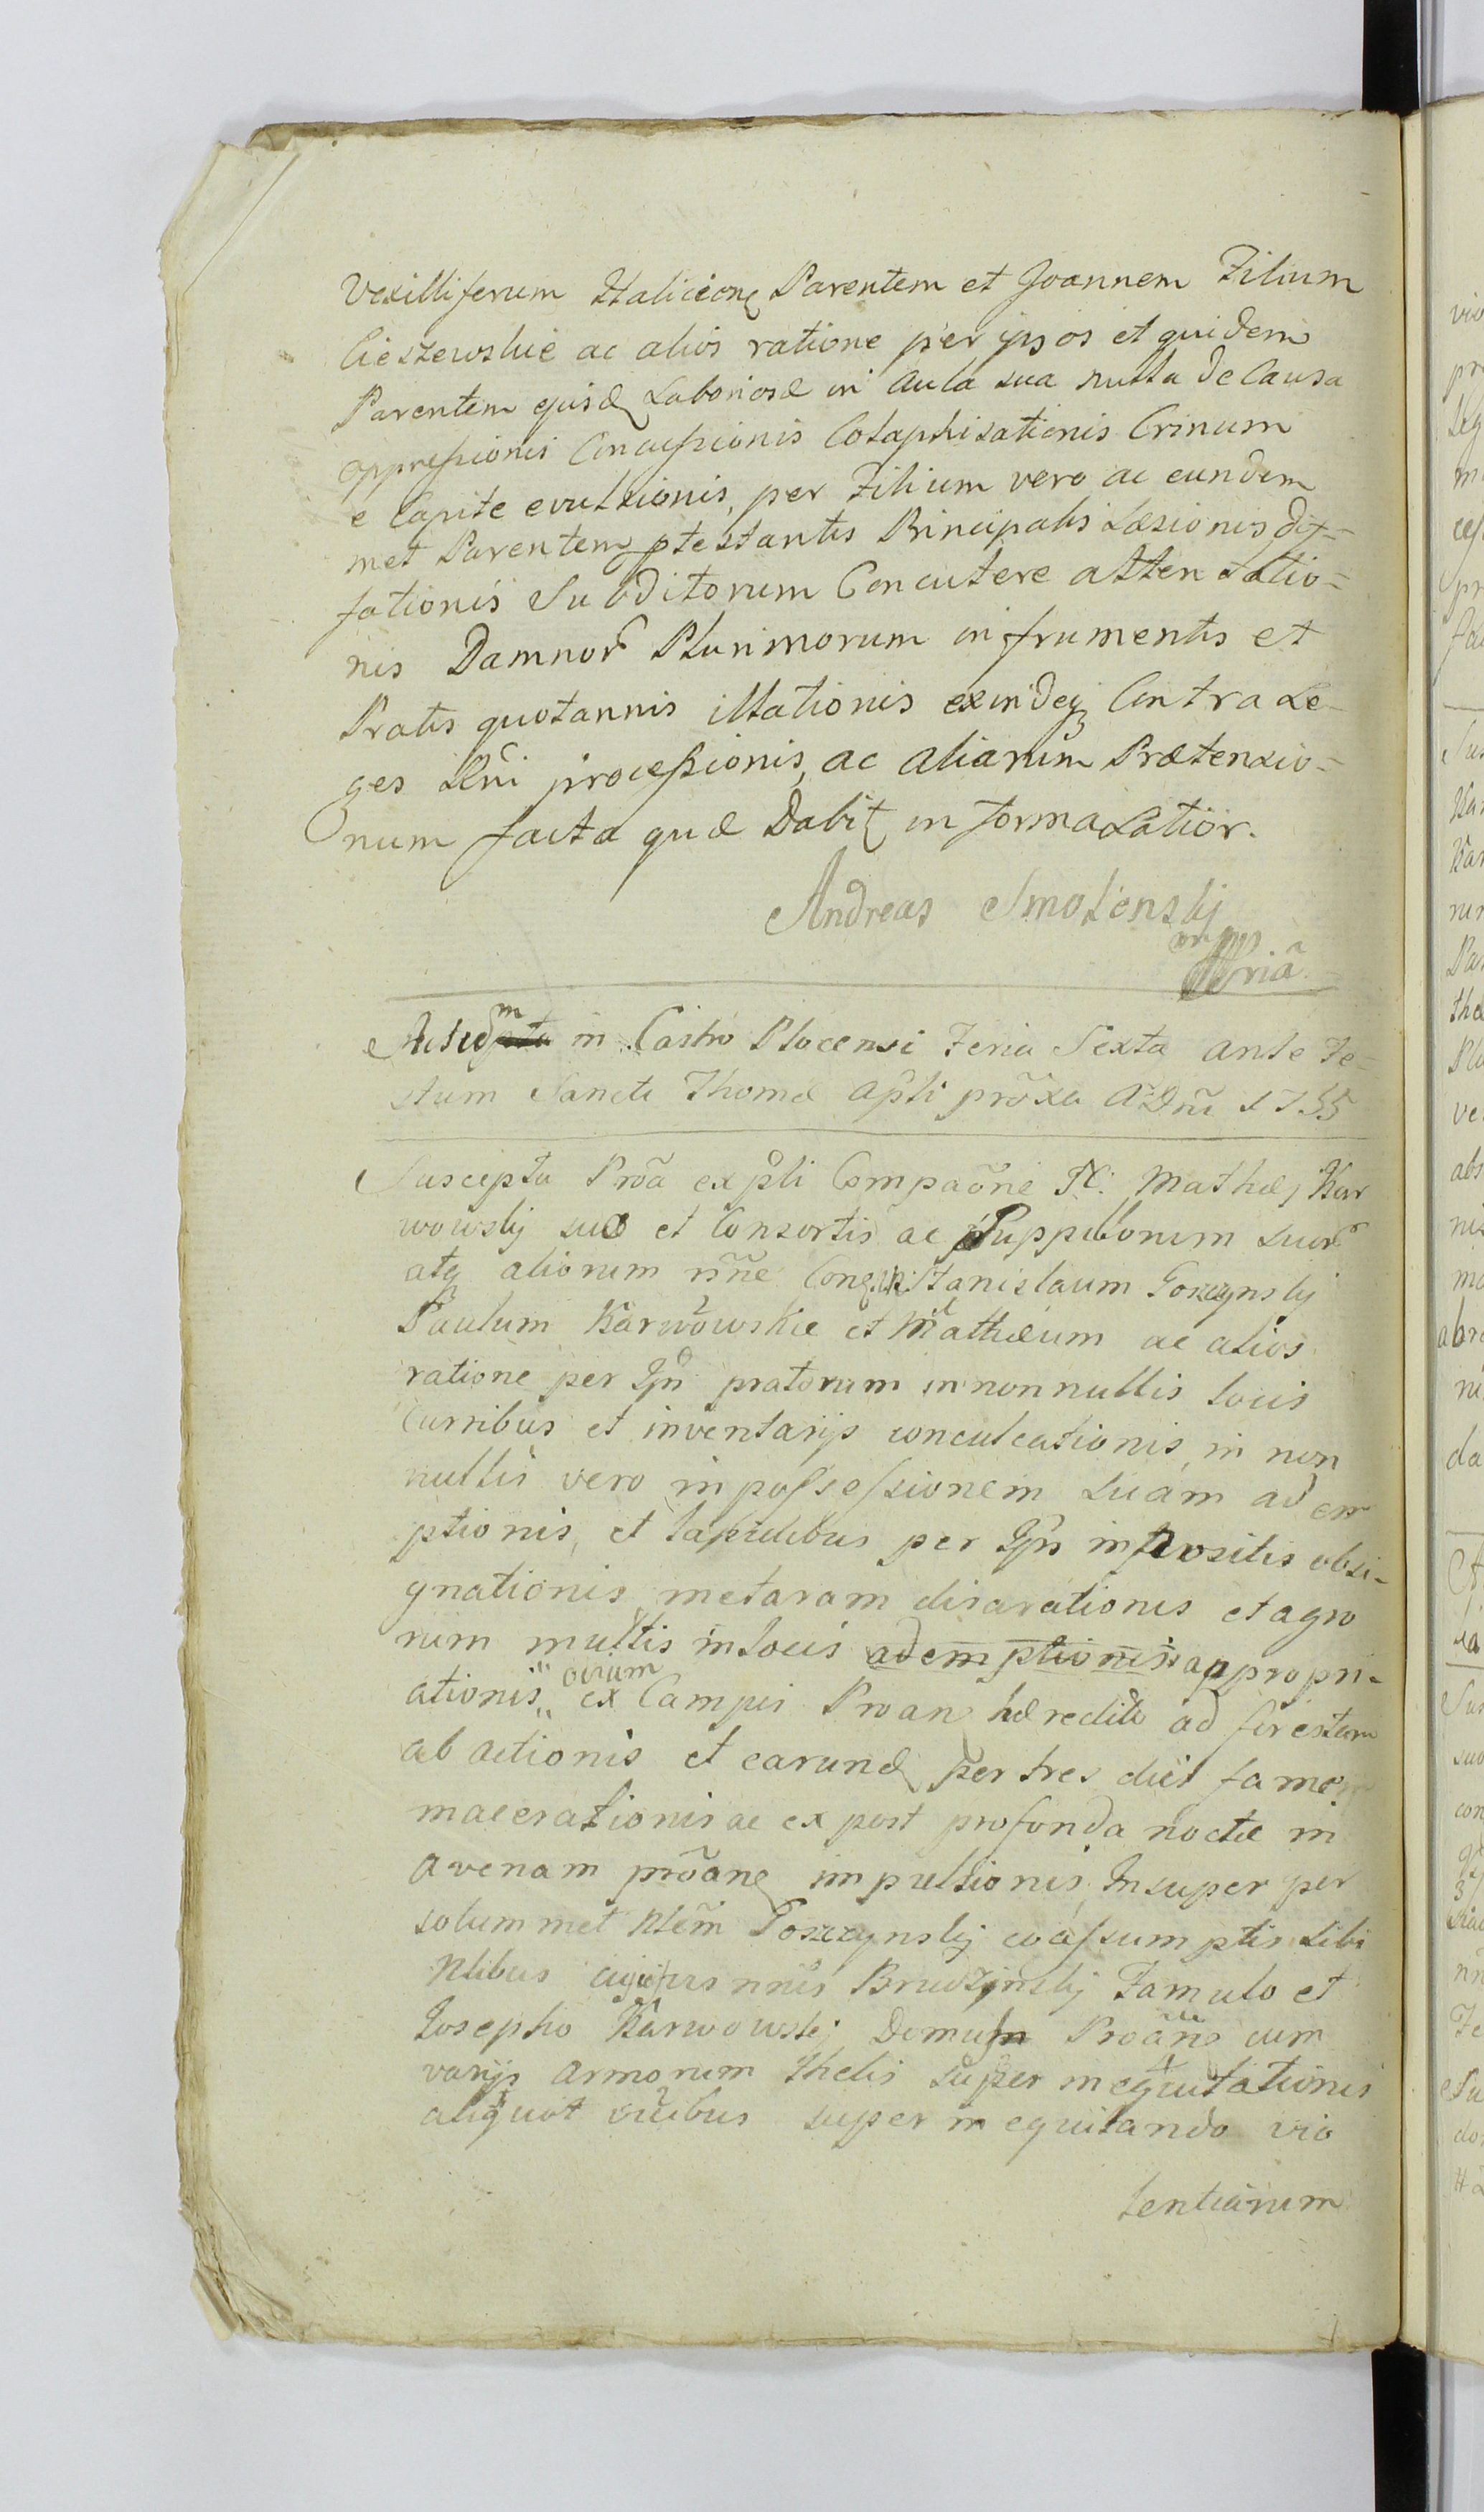 Vexilliferum Halicien Parentem et Joannem Filium
Cieszewskie ac alios ratione per ipsos et quidem
Parentem ejusd Laboriosæ in Aula sua nulla de Causa
oppressionis Concussionis Colaphisationis Crinum
e Capite evulsionis, per Filium vero ac eundem
met Parentem ptestantis Principalis Læsionis dif=
fationis Subditorum Concutere attentatio=
nis Damnor Plurimorum in frumentis et
Pratis quotannis illationis exindeq Contra Le-
ges Rni processionis, ac aliarum Prætensio=
num facta quæ Dabit in forma Latior.
Andreas Smolenskj
mpp
Actum in Castro Plocensi Feria Sexta ante Fe-
stum Sancti Thomæ Apli proxa A Dni 1755
Suscepta Proa expli Compaone N: Mathæj Kar
wowskj suo et Consortis ac Puppillorum suor
atq aliorum nne Conq Stanislaum Goszczynskj
Paulum Karwowskie et Mathæum ac alios
ratione per Ipn pratorum in nonnullis locis
Curribus et inventarijs conculcationis, in non
nullis vero in possessionem suam adem
ptionis, et lapidibus per Ipn impositis obsi-
gnationis metarum disarationis et agro
rum multis in locis ademptionis appropri-
ationis, ovium ex Campis Proan hæredit ad forestam
abactionis et earund per tres dies famem
macerationis ac ex post profonda nocte in
avenam proane impulsionis, Insuper per
solummet Nlem Goszczynskj coassumptis sibi
Nlibus cujus nnis Brudzynskj Famulo et
Josepho Karwowskj Domum Proane cum
varijs armorum thelis super inequitationis
aliquot vicibus super inequitando vio
lentiarum